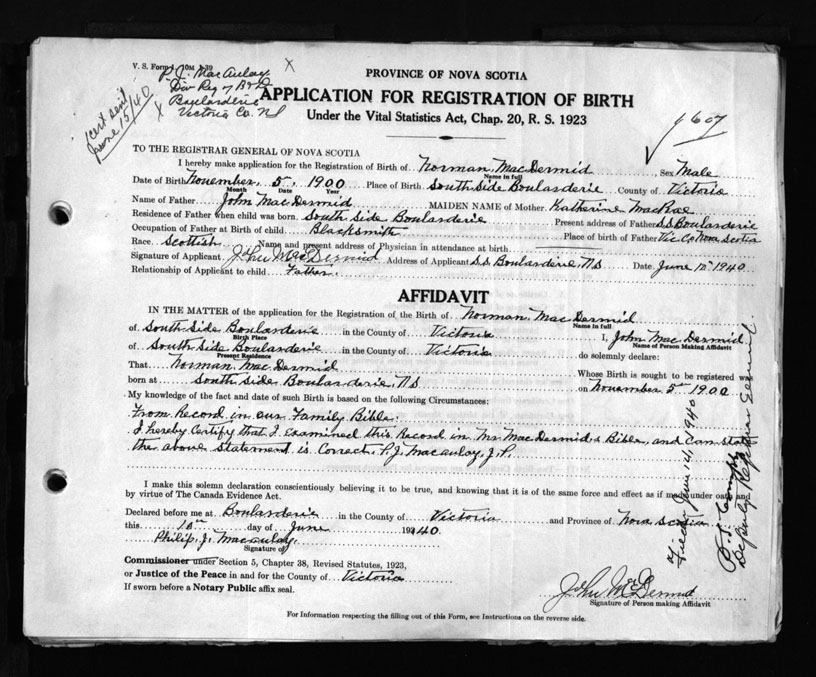 V. S. Form 39
P. J. MacAulay X
Div Reg of B & D
Boularderie
X Victoria Co. NS
cert sent
June 15/40
PROVINCE OF NOVA SCOTIA
APPLICATION FOR REGISTRATION OF BIRTH
Under the Vital Statistics Act, Chap. 20, R. S. 1923
TO THE REGISTRAR GENERAL OF NOVA SCOTIA
I hereby make application for the Registration of Birth of Norman MacDermid Sex Male
Name in full
Date of Birth November 5, 1900 Place of Birth South Side Boularderie County of Victoria
Month Date Year
Name of Father John MacDermid MAIDEN NAME of Mother Katherine MacRae
Residence of Father when child was born South Side Boularderie Present address of Father S.S. Boularderie
Occupation of Father at Birth of child Blacksmith Place of birth of Father Vic Co Nova Scotia
Race Scottish Name and present address of Physician in attendance at birth
Signature of Applicant John MacDermid Address of Applicant S.S. Boularderie, NS Date June 10th 1940
Relationship of Applicant to child Father.
AFFIDAVIT
IN THE MATTER of the application for the Registration of the Birth of Norman MacDermid
Name in full
of South Side Boularderie in the County of Victoria I, John MacDermid
Birth Place Name of Person Making Affidavit
of South Side Boularderie in the County of Victoria do solemnly declare:
Present Residence
That Norman MacDermid Whose Birth is sought to be registered was
born at South Side Boularderie, NS on November 5th 1900
My knowledge of the fact and date of such Birth is based on the following Circumstances:
From Record in our Family Bible.
I hereby Certify that I Examined this Record in Mr MacDermid's Bible, and Can State
the above Statement is Correct. P. J. Macaulay, J. P.
I make this solemn declaration conscientiously believing it to be true, and knowing that it is of the same force and effect as if made under oath and
by virtue of The Canada Evidence Act.
Declared before me at Boularderie in the County of Victoria and Province of Nova Scotia
this 10th day of June 1940
Philip J. Macaulay
Signature of
Commissioner under Section 5, Chapter 38, Revised Statutes, 1923,
or Justice of the Peace in and for the County of Victoria
If sworn before a Notary Public affix seal.
John McDermid
Signature of Person making Affidavit
For Information respecting the filling out of this Form, see Instructions on the reverse side.
Filed June 12, 1940
Deputy Registrar General.